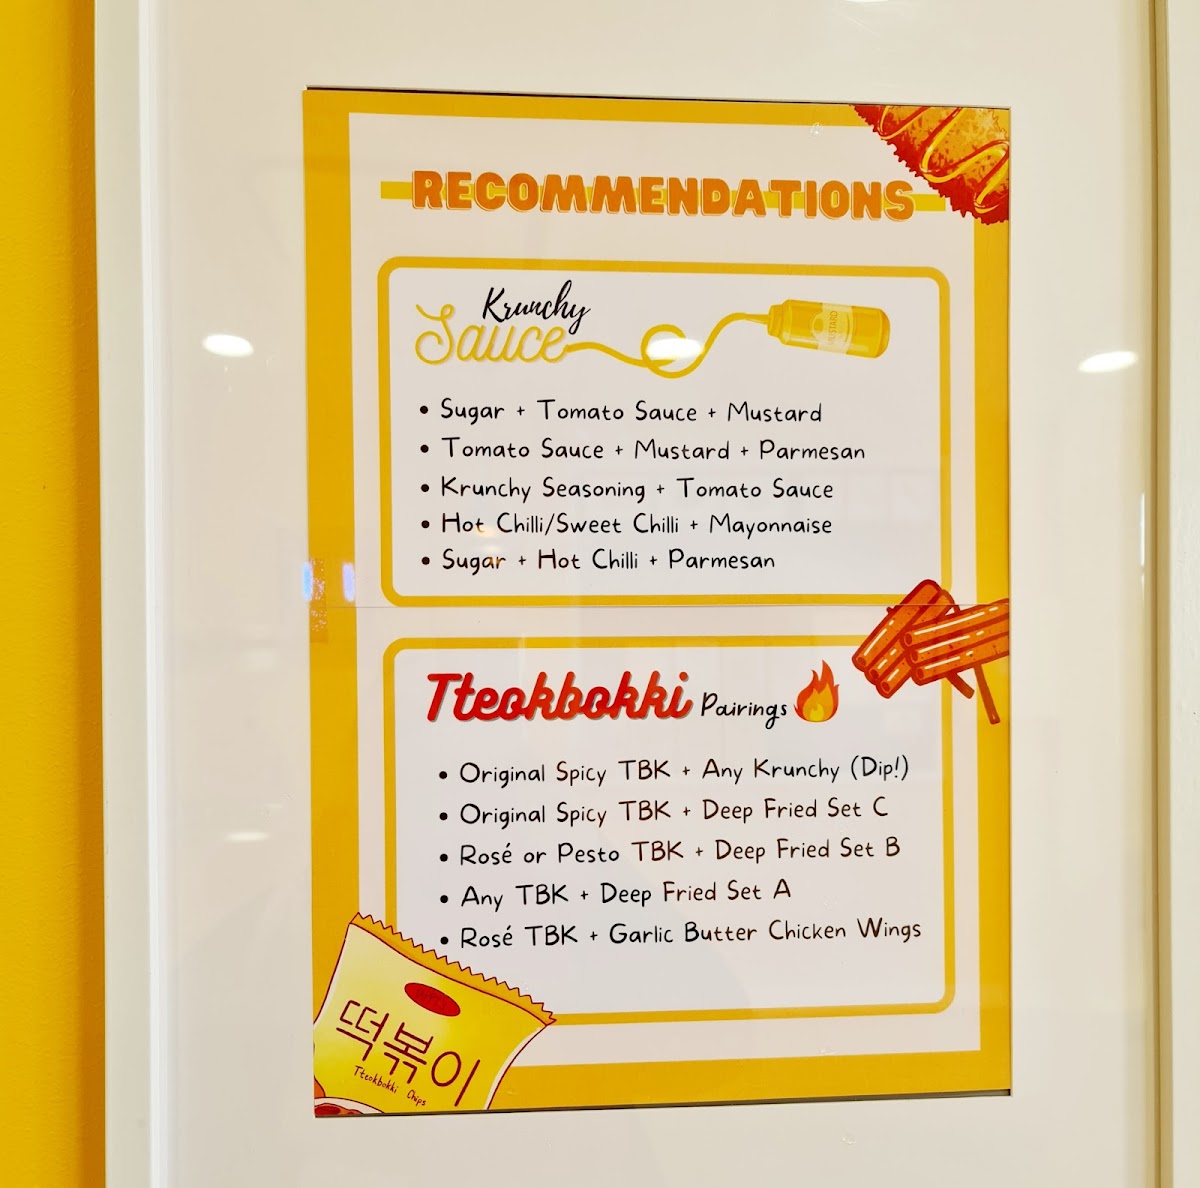 RECOMMENDATIONS
Krunchy
Sauce
MUSTARD
• Sugar + Tomato Sauce + Mustard
• Tomato Sauce + Mustard + Parmesan
• Krunchy Seasoning + Tomato Sauce
• Hot Chilli/Sweet Chilli + Mayonnaise
• Sugar + Hot Chilli + Parmesan
Tteokbokki Pairings
• Original Spicy TBK + Any Krunchy (Dip!)
• Original Spicy TBK + Deep Fried Set C
• Rosé or Pesto TBK + Deep Fried Set B
• Any TBK + Deep Fried Set A
• Rosé TBK + Garlic Butter Chicken Wings
떡볶이
Tteokbokki Chips